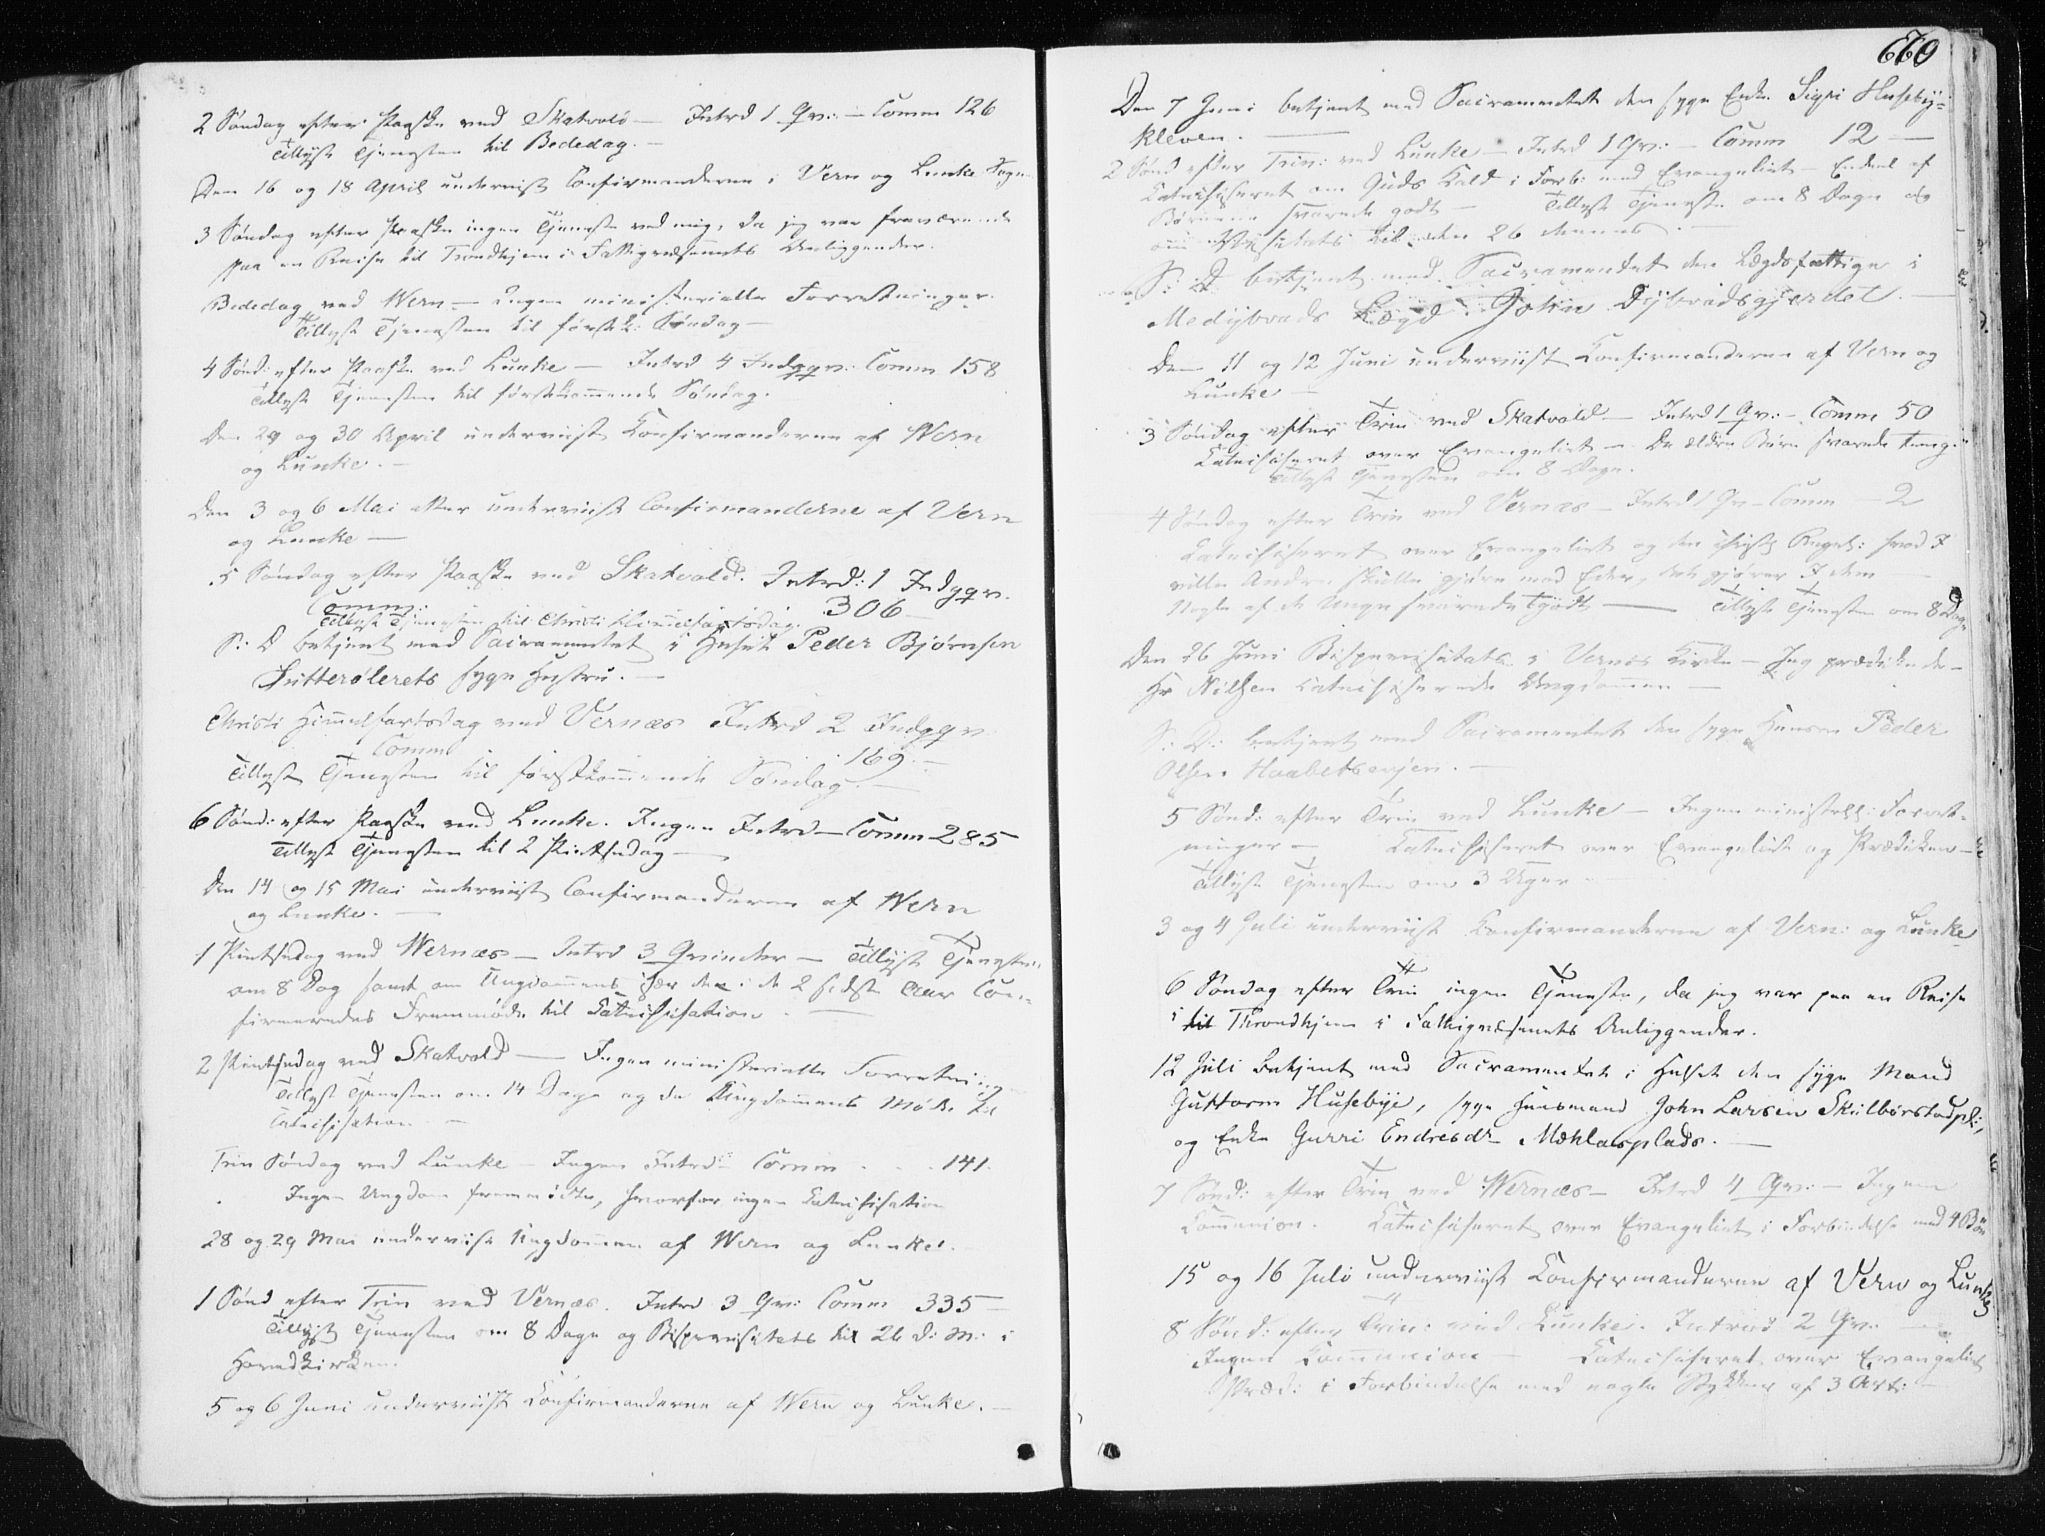 2 Søndag efter Paaske ved Skatvold — Introd 1 Qv: — Comm 126
Tillyst Tjenesten til Bededag. —
Den 16 og 18 April underviist Confirmanderne i Vern og Lunke Sogn
3 Søndag efter Paaske ingen Tjeneste ved mig, da jeg var fraværende
paa en Reise til Trondhjem i Fattigvæsenets Anliggender.
Bededag ved Wern — Ingen ministerielle Forretninger.
Tillyst Tjenesten til førstk: Søndag —
4 Sønd: efter Paaske ved Lunke — Introd 4 Indgqv: Comm 158
Tillyst Tjenesten til førstkommende Søndag.
Den 29 og 30 April underviist Confirmanderne af Wern
og Lunke. —
Den 3 og 6 Mai atter underviist Confirmanderne af Vern
og Lunke —
5 Søndag efter Paaske ved Skatvold. Introd: 1 Indgqv.
Comm: 306 —
Tillyst Tjenesten til Christi Himmelfartsdag.
S: D betjent med Sacramentet i Huset Peder Bjørnsen
Sutterølerets syge Hustru. —
Christi Himmelfartsdag ved Vernæs Introd 2 Indgqv
Comm 169. —
Tillyst Tjenesten til førstkommende Søndag. —
6 Sønd: efter Paaske ved Lunke. Ingen Introd — Comm 285
Tillyst Tjenesten til 2 Pintsedag —
Den 14 og 15 Mai underviist Confirmanderne af Wern
og Lunke. —
1 Pintsedag ved Wernæs — Introd 3 Qvinder — Tillyst Tjenesten
om 8 Dag samt om Ungdommens især den i de 2 sidste Aar Con-
firmeredes Fremmøde til Catechisation. —
2 Pintsedag ved Skatvold — Ingen ministerielle Forretninger
Tillyst Tjenesten om 14 Dage og da Ungdommens Møde til
Catechisation —
Trin Søndag ved Lunke — Ingen Introd — Comm . . . 141.
Ingen Ungdom fremmødte, hvorfor ingen Catechisation
28 og 29 Mai underviist Ungdommen af Wern og Lunke.
1 Sønd efter Trin ved Vernæs. Introd 3 Qv: Comm 335 —
Tillyst Tjenesten om 8 Dage og Bispevisitats til 26 d: M: i
Hovedkirken.
5 og 6 Juni underviist Confirmanderne af Wern og Lunke. —
Den 7 Juni betjent med Sacramentet den syge Enke Sigri Huseby-
kleven. —
2 Sønd efter Trin: ved Lunke — Introd 1 Qv: — Comm 12 —
Catechiseret om Guds Kald i Forb: med Evangeliet — Endeel af
Børnene svarede godt — Tillyst Tjeneste om 8 Dage og
om Visitats til den 26 dennes. —
S: D betjent med Sacramentet den Lægdsfattige i
Medybvads Lægd John Dybvadsgjerdet. —
Den 11 og 12 Juni underviist Confirmanderne af Vern og
Lunke —
3 Søndag efter Trin ved Skatvold — Introd 1 Qv: — Comm 50
Catechiseret over Evangeliet — De ældre Børn svarede tung.
Tillyst Tjenesten om 8 Dage.
4 Søndag efter Trin ved Vernæs — Introd 1 Qv — Comm — 2
Catechiseret over Evangeliet og den christl Regel: hvad I
ville Andre skulle gjøre mod Eder, det gjører I dem —
Nogle af de Unge svarede godt — Tillyst Tjenesten om 8 Dage
Den 26 Juni Bispevisitats i Vernæs Kirke — Jeg prædikede —
Hr Nilsen catechiserede Ungdommen —
S: D: betjent med Sacramentet den syge Huusm Peder
Olsen Haabetsenjen. —
5 Sønd: efter Trin ved Lunke — Ingen ministell: Forret-
ninger — Catechiseret over Evangeliet og Prædiken —
Tillyst Tjenesten om 3 Uger —
3 og 4 Juli underviist Confirmanderne af Vern: og Lunke
6 Søndag efter Trin ingen Tjeneste, da jeg var paa en Reise
i til Throndhjem i Fattigvæsenets Anliggender.
12 Juli betjent med Sacramentet i Huset den syge Mand
Guttorm Husebye, syge Huusmand John Larsen Skulbørstadpl:,
og Enke Gurri Endresdr Mæhlasplads. —
7 Sønd: efter Trin ved Wernæs — Introd 4 Qv: — Ingen
Communion. Catechiseret over Evangeliet i Forbindelse med 4 Bøn
15 og 16 Juli underviist Confirmanderne af Vern og Lunke
8 Sønd: efter Trin: ved Lunke. Introd 2 Qv: —
Ingen Communion — Catechiseret over Evangeliet
Præd: i Forbindelse med nogle Stykker af 3 Art: —